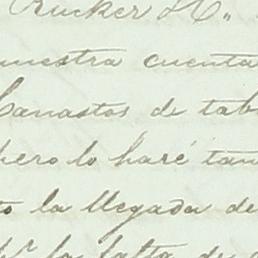 Rucker H.,,
nuestra cuenta
Canastos de tab
pero lo haré tan
to la llegada de
la falta de